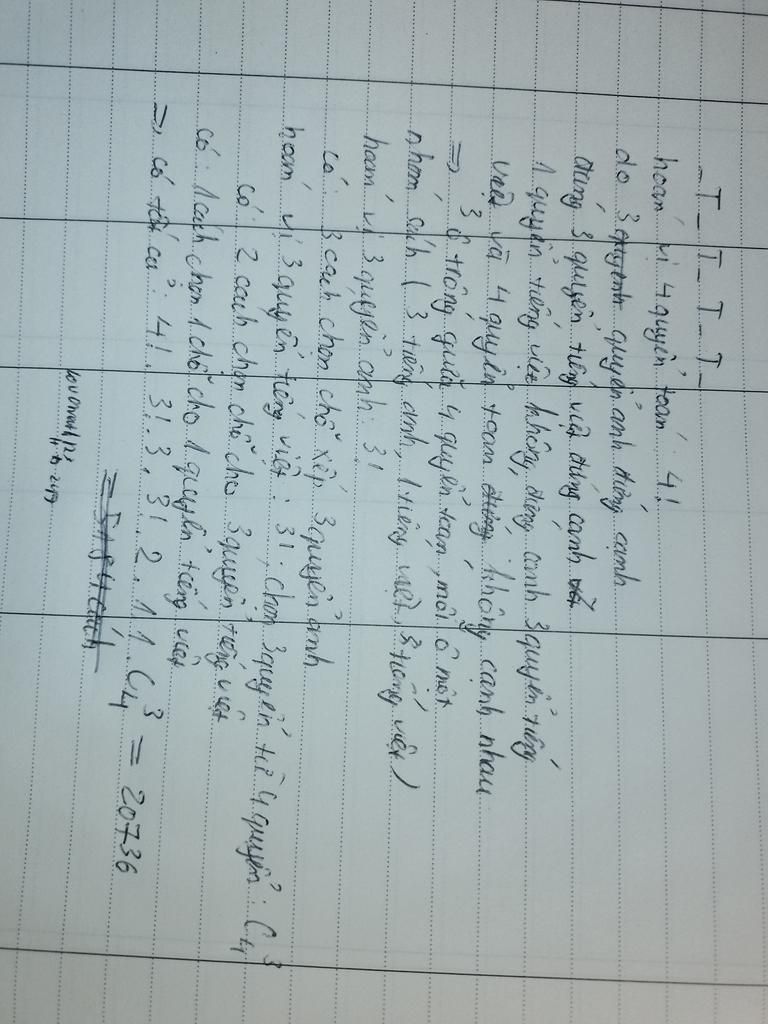 _ T _ T _ T _ T _
hoán vị 4 quyển toán : 4!
do 3 quyển anh đứng cạnh
đúng 3 quyển tiếng việt đứng cạnh
1 quyển tiếng việt không đứng cạnh 3 quyển tiếng
việt và 4 quyển toán không cạnh nhau
=> 3 ô trống giữa 4 quyển toán, mỗi ô một
nhóm sách ( 3 tiếng anh, 1 tiếng việt, 3 tiếng việt )
hoán vị 3 quyển anh : 3!
có : 3 cách chọn chỗ xếp 3 quyển anh
hoán vị 3 quyển tiếng việt : 3! , chọn 3 quyển từ 4 quyển : C₄³
có 2 cách chọn chỗ cho 3 quyển tiếng việt
có : 1 cách chọn 1 chỗ cho 1 quyển tiếng việt
=> có tất cả : 4! . 3! . 3 . 3! . 2 . 1 . 1 . C₄³ = 20736
= 5184 cách